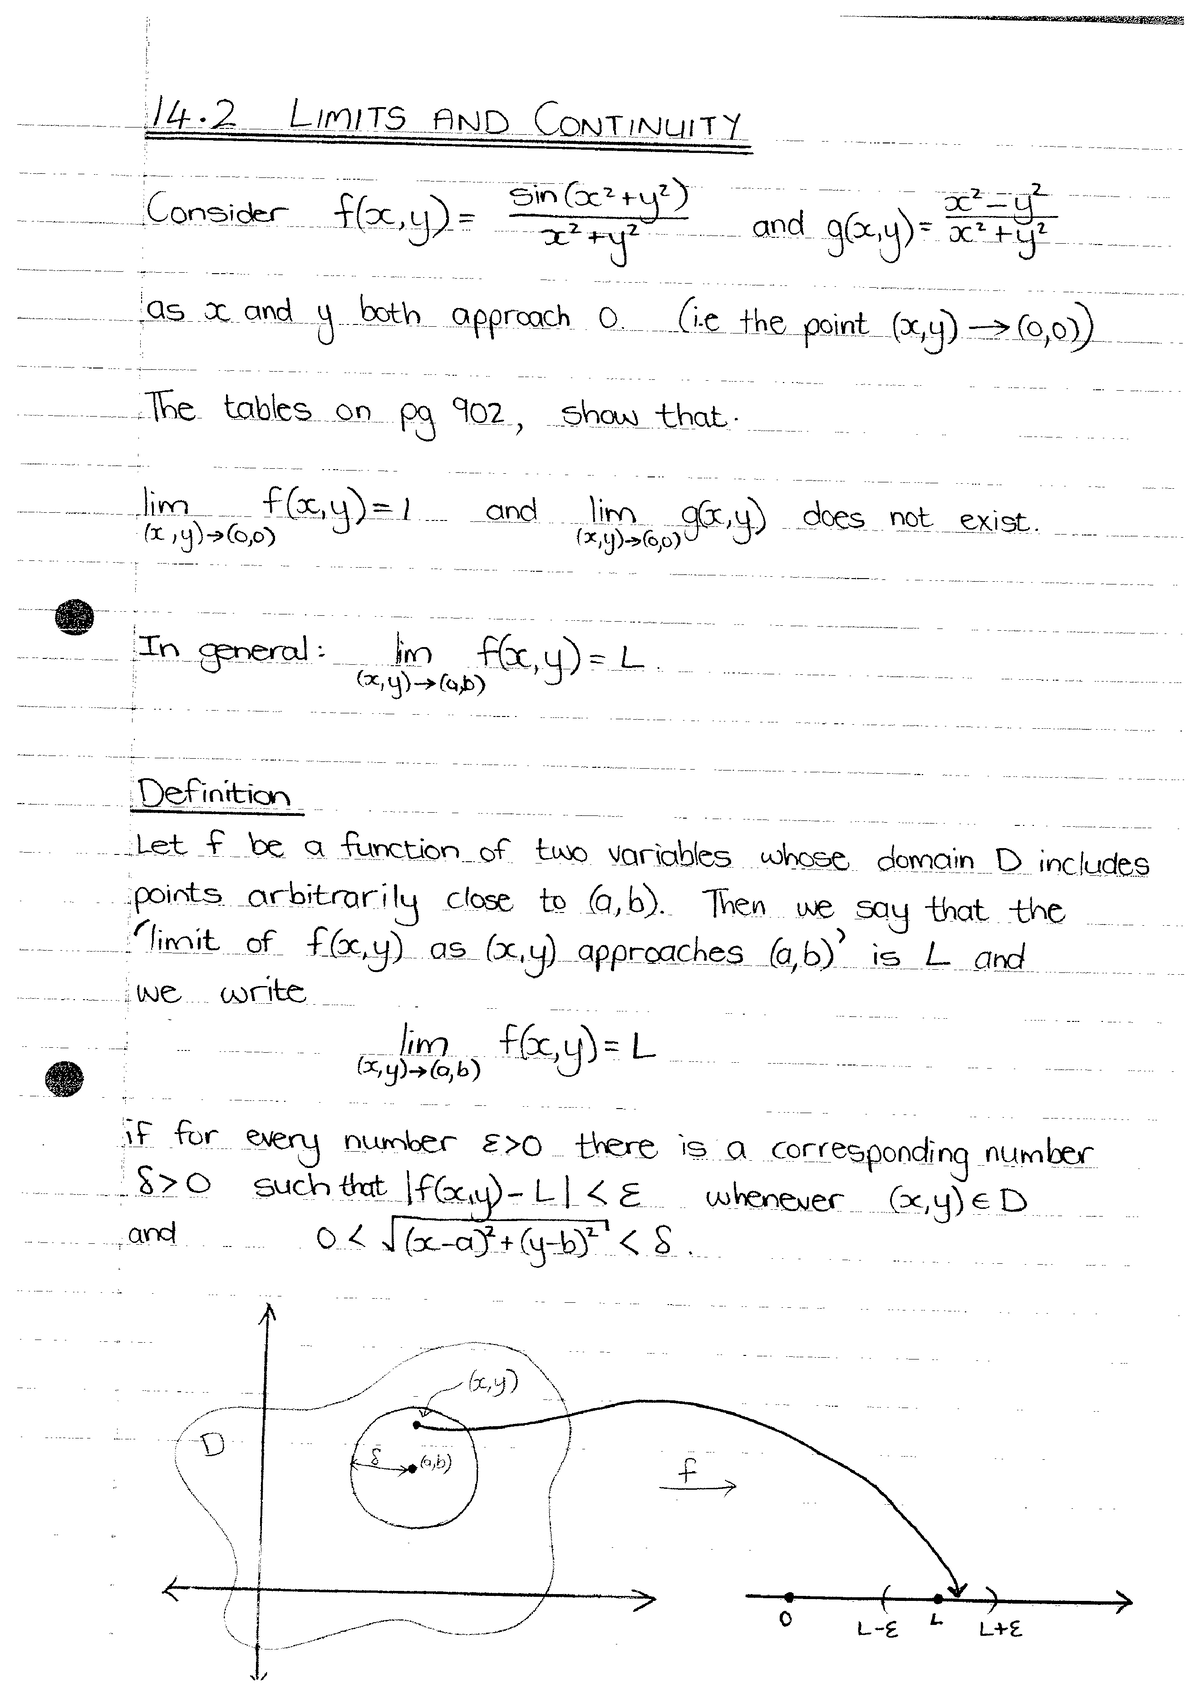 14.2 LIMITS AND CONTINUITY
Consider f(x,y) = sin(x²+y²)/(x²+y²) and g(x,y) = (x²−y²)/(x²+y²)
as x and y both approach 0. (i.e the point (x,y) → (0,0))
The tables on pg 902, show that.
lim f(x,y) = 1 and lim g(x,y) does not exist.
(x,y)→(0,0) (x,y)→(0,0)
In general: lim f(x,y) = L.
(x,y)→(a,b)
Definition
Let f be a function of two variables whose domain D includes
points arbitrarily close to (a,b). Then we say that the
'limit of f(x,y) as (x,y) approaches (a,b)' is L and
we write
lim f(x,y) = L
(x,y)→(a,b)
if for every number ε>0 there is a corresponding number
δ>0 such that |f(x,y) − L| < ε whenever (x,y) ∈ D
and 0 < √((x−a)²+(y−b)²) < δ.
(x,y)
D
δ (a,b)
f
0 L−ε L L+ε